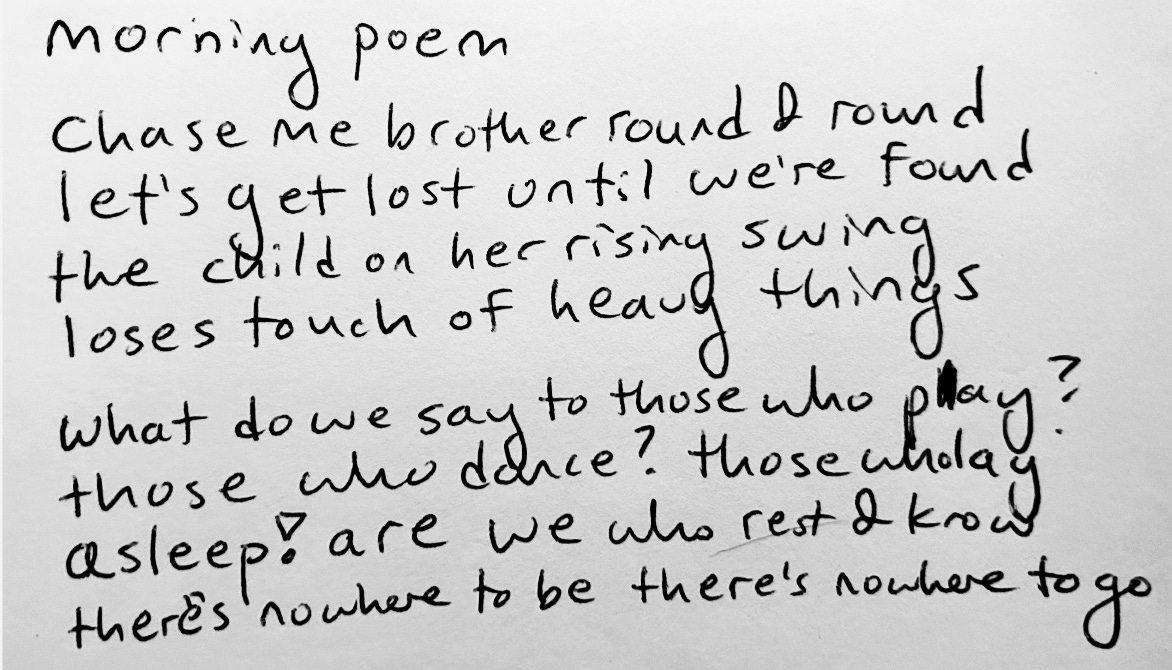 morning poem
Chase me brother round & round
let's get lost until we're found
the child on her rising swing
loses touch of heavy things
what do we say to those who play?
those who dance? those who lay
asleep? are we who rest & know
there's nowhere to be there's nowhere to go